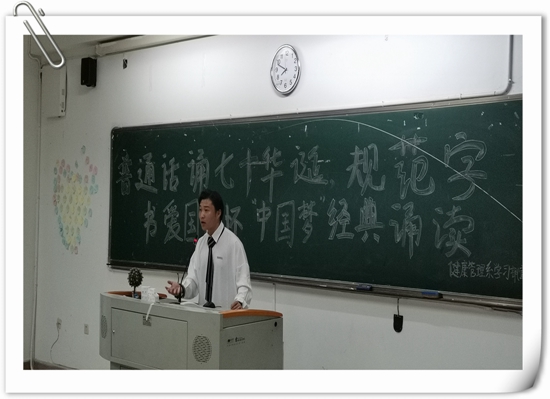 普通话诵七十华诞，规范字
书爱国怀"中国梦"经典诵读
健康管理系学习